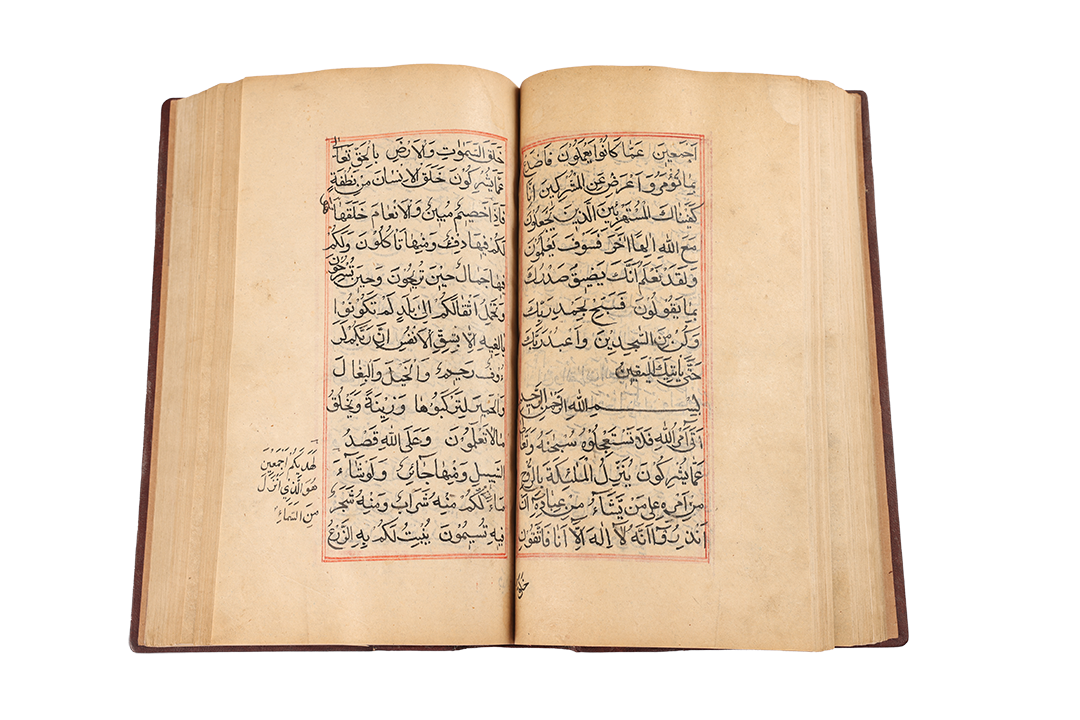 اَجْمَعِينَ عَمَّا كَانُوا يَعْمَلُونَ فَاصْدَعْ
بِمَا تُؤْمَرُ وَاَعْرِضْ عَنِ الْمُشْرِكِينَ اِنَّا
كَفَيْنَاكَ الْمُسْتَهْزِئِينَ الَّذِينَ يَجْعَلُونَ
مَعَ اللهِ اِلٰهًا اٰخَرَ فَسَوْفَ يَعْلَمُونَ
وَلَقَدْ نَعْلَمُ اَنَّكَ يَضِيقُ صَدْرُكَ
بِمَا يَقُولُونَ فَسَبِّحْ بِحَمْدِ رَبِّكَ
وَكُنْ مِنَ السّٰجِدِينَ وَاعْبُدْ رَبَّكَ
حَتّٰى يَاْتِيَكَ الْيَقِينُ
بِسْمِ اللهِ الرَّحْمٰنِ الرَّحِيمِ
اَتٰى اَمْرُ اللهِ فَلَا تَسْتَعْجِلُوهُ سُبْحٰنَهُ وَتَعَا
عَمَّا يُشْرِكُونَ يُنَزِّلُ الْمَلٰئِكَةَ بِالرُّوحِ
مِنْ اَمْرِهِ عَلٰى مَنْ يَشَاءُ مِنْ عِبَادِهِ اَنْ
اَنْذِرُوا اَنَّهُ لَا اِلٰهَ اِلَّا اَنَا فَاتَّقُونِ
خَلَقَ
خَلَقَ السَّمٰوٰتِ وَالْاَرْضَ بِالْحَقِّ تَعَالٰى
عَمَّا يُشْرِكُونَ خَلَقَ الْاِنْسَانَ مِنْ نُطْفَةٍ
فَاِذَا هُوَ خَصِيمٌ مُبِينٌ وَالْاَنْعَامَ خَلَقَهَا
لَكُمْ فِيهَا دِفْءٌ وَمِنْهَا تَاْكُلُونَ وَلَكُمْ
فِيهَا جَمَالٌ حِينَ تُرِيحُونَ وَحِينَ تَسْرَحُونَ
وَتَحْمِلُ اَثْقَالَكُمْ اِلٰى بَلَدٍ لَمْ تَكُونُوا
بَالِغِيهِ اِلَّا بِشِقِّ الْاَنْفُسِ اِنَّ رَبَّكُمْ لَرَ
ءُوفٌ رَحِيمٌ وَالْخَيْلَ وَالْبِغَالَ
وَالْحَمِيرَ لِتَرْكَبُوهَا وَزِينَةً وَيَخْلُقُ
مَا لَا تَعْلَمُونَ وَعَلَى اللهِ قَصْدُ
السَّبِيلِ وَمِنْهَا جَائِرٌ وَلَوْ شَاءَ
مَاءً لَكُمْ مِنْهُ شَرَابٌ وَمِنْهُ شَجَرٌ
فِيهِ تُسِيمُونَ يُنْبِتُ لَكُمْ بِهِ الزَّرْعَ
لَهَدٰيكُمْ اَجْمَعِينَ
هُوَ الَّذِي اَنْزَلَ
مِنَ السَّمَاءِ